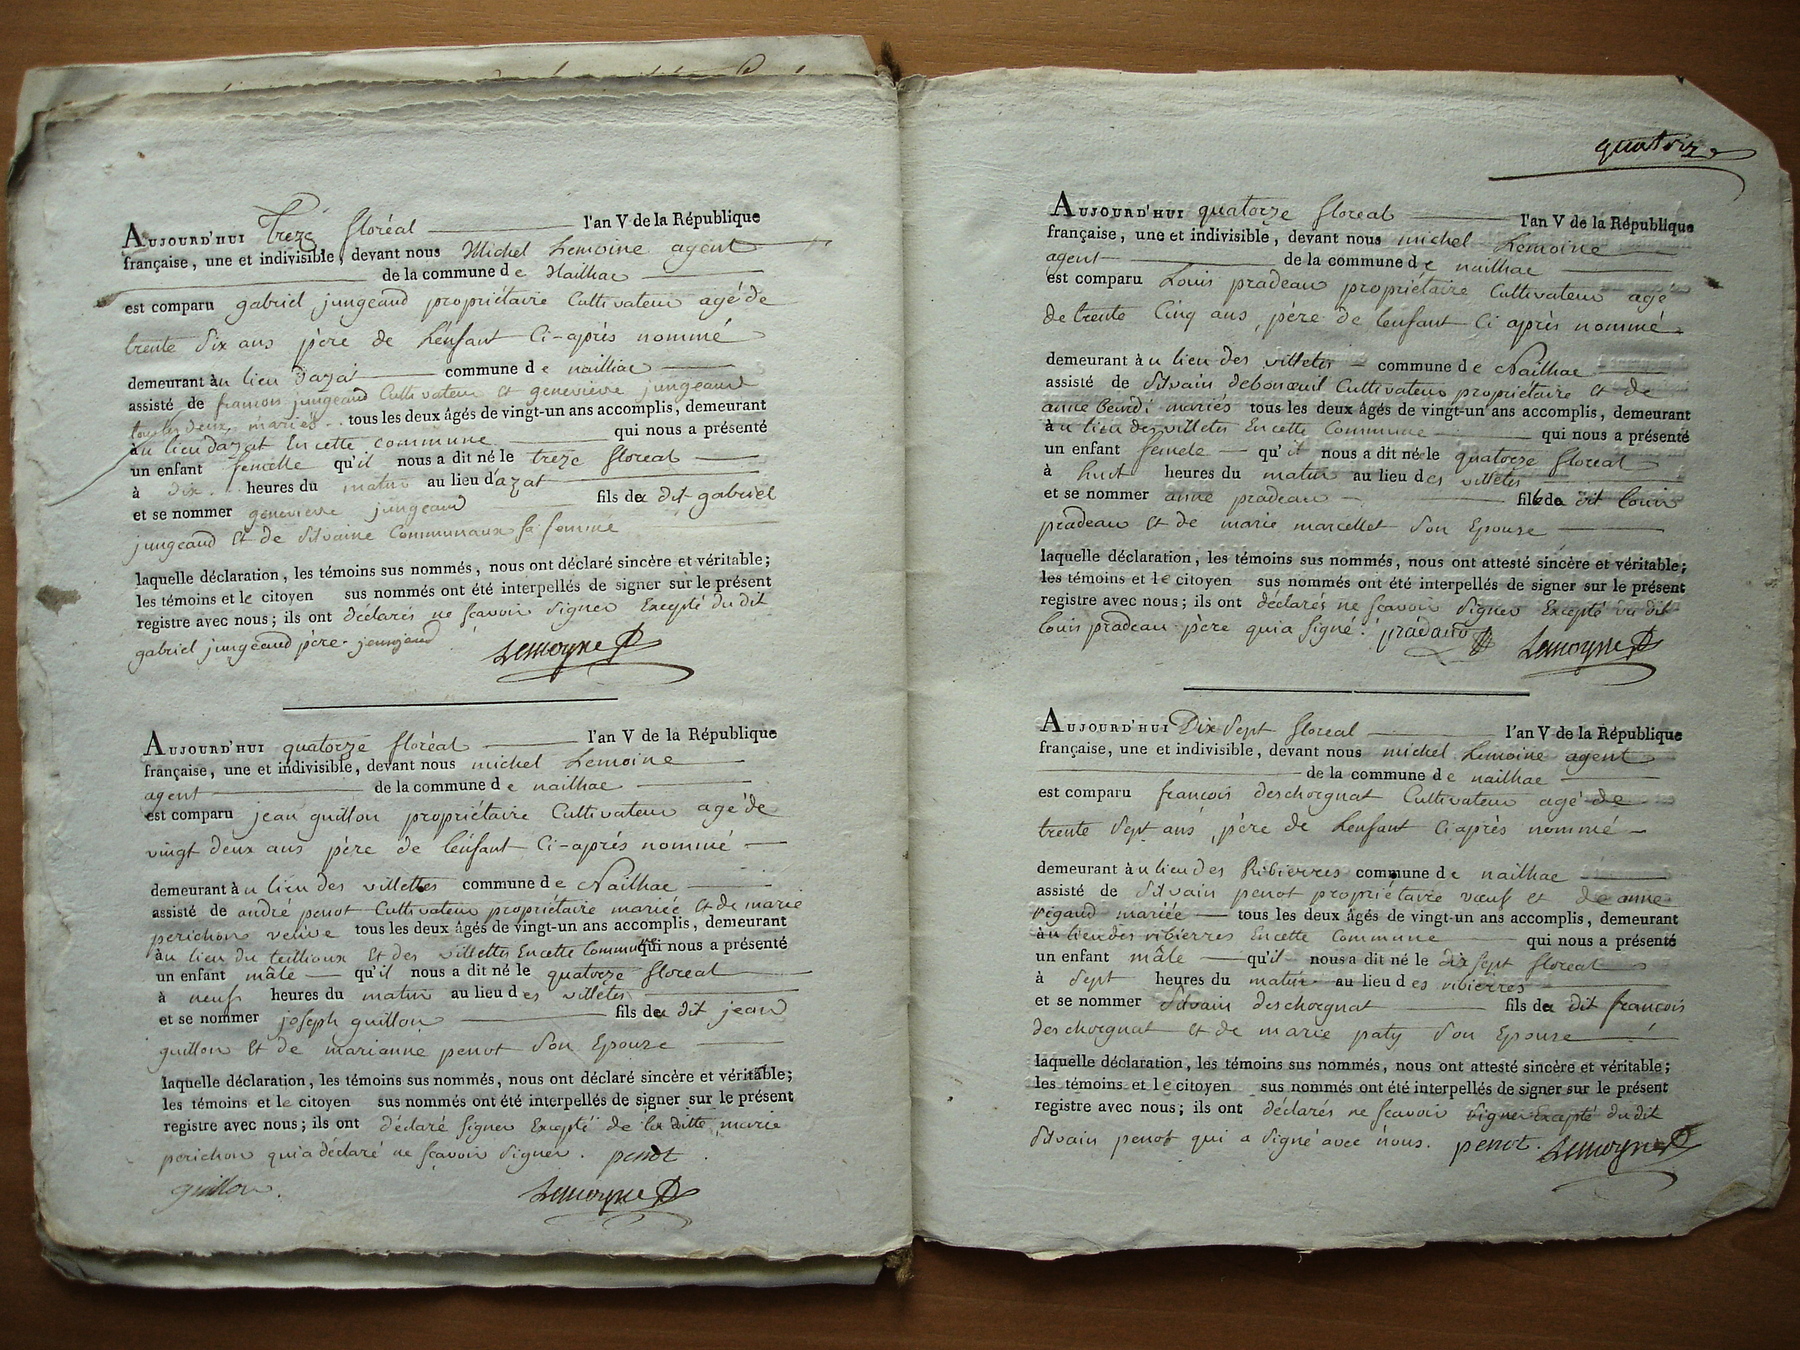 Aujourd'hui treze floréal l'an V de la République
française, une et indivisible, devant nous Michel Lemoine agent
de la commune de Nailhac
est comparu gabriel jungeaud propriétaire Cultivateur agé de
trente Six ans père de Lenfant Ci-après nommé
demeurant au lieu dazat commune de nailhac
assisté de francois jungeaud Cultivateur Et genevieve jungeaud
tous les deux mariés tous les deux âgés de vingt-un ans accomplis, demeurant
au lieu dazat En cette commune qui nous a présenté
un enfant femelle qu'il nous a dit né le treze floreal
à dix heures du matin au lieu d'azat
et se nommer genevieve jungeaud fils de dit gabriel
jungeaud Et de Silvaine Communaux Sa femme
laquelle déclaration, les témoins sus nommés, nous ont déclaré sincère et véritable;
les témoins et le citoyen sus nommés ont été interpellés de signer sur le présent
registre avec nous; ils ont déclarés ne scavoir Signer Excepté du dit
gabriel jungeaud père. Lemoyne
Aujourd'hui quatorze floréal l'an V de la République
française, une et indivisible, devant nous michel Lemoine
agent de la commune de nailhac
est comparu jean guillon propriétaire Cultivateur agé de
vingt deux ans père de lenfant Ci-après nommé
demeurant au lieu des villettes commune de Nailhac
assisté de andré penot Cultivateur propriétaire mariée Et de marie
perichon veuve tous les deux âgés de vingt-un ans accomplis, demeurant
au lieu du teillioux Et des villettes En cette Commune qui nous a présenté
un enfant mâle qu'il nous a dit né le quatorze floreal
à neuf heures du matin au lieu des villetes
et se nommer joseph guillon fils du dit jean
guillon Et de marianne penot Son Epouze
laquelle déclaration, les témoins sus nommés, nous ont déclaré sincère et véritable;
les témoins et le citoyen sus nommés ont été interpellés de signer sur le présent
registre avec nous; ils ont déclaré signer Excepté de la ditte marie
perichon qui a déclaré ne scavoir Signer. penot
guillon. Lemoyne
quatorze
Aujourd'hui quatorze floreal l'an V de la République
française, une et indivisible, devant nous michel Lemoine
agent de la commune de nailhac
est comparu Louis pradeau propriétaire Cultivateur agé
de trente Cinq ans, père de lenfant Ci après nommé
demeurant au lieu des villetes commune de Nailhac
assisté de Silvain debonœuil Cultivateur propriétaire Et de
anne mariés tous les deux âgés de vingt-un ans accomplis, demeurant
au lieu des villetes En cette Commune qui nous a présenté
un enfant femele qu'il nous a dit né le quatorze floreal
à huit heures du matin au lieu des villetes
et se nommer anne pradeau fille du dit Louis
pradeau Et de marie marcellet Son Epouse
laquelle déclaration, les témoins sus nommés, nous ont attesté sincère et véritable;
les témoins et le citoyen sus nommés ont été interpellés de signer sur le présent
registre avec nous; ils ont déclarés ne scavoir Signer Excepté du dit
Louis pradeau père qui a signé. pradauo Lemoyne
Aujourd'hui Dix Sept floreal l'an V de la République
française, une et indivisible, devant nous michel Lemoine agent
de la commune de nailhac
est comparu françois deschorgnat Cultivateur agé de
trente Sept ans, père de Lenfant Ci après nommé
demeurant au lieu des Ribierres commune de nailhac
assisté de Silvain penot propriétaire vœuf et de anne
rigaud mariée tous les deux âgés de vingt-un ans accomplis, demeurant
au lieu des ribierres En cette Commune qui nous a présenté
un enfant mâle qu'il nous a dit né le dix sept floreal
à Sept heures du matin au lieu des ribierres
et se nommer Silvain deschorgnat fils du dit françois
deschorgnat et de marie paty Son Epouse
laquelle déclaration, les témoins sus nommés, nous ont attesté sincère et véritable;
les témoins et le citoyen sus nommés ont été interpellés de signer sur le présent
registre avec nous; ils ont déclarés ne scavoir signer Excepté du dit
Silvain penot qui a Signé avec nous. penot. Lemoyne